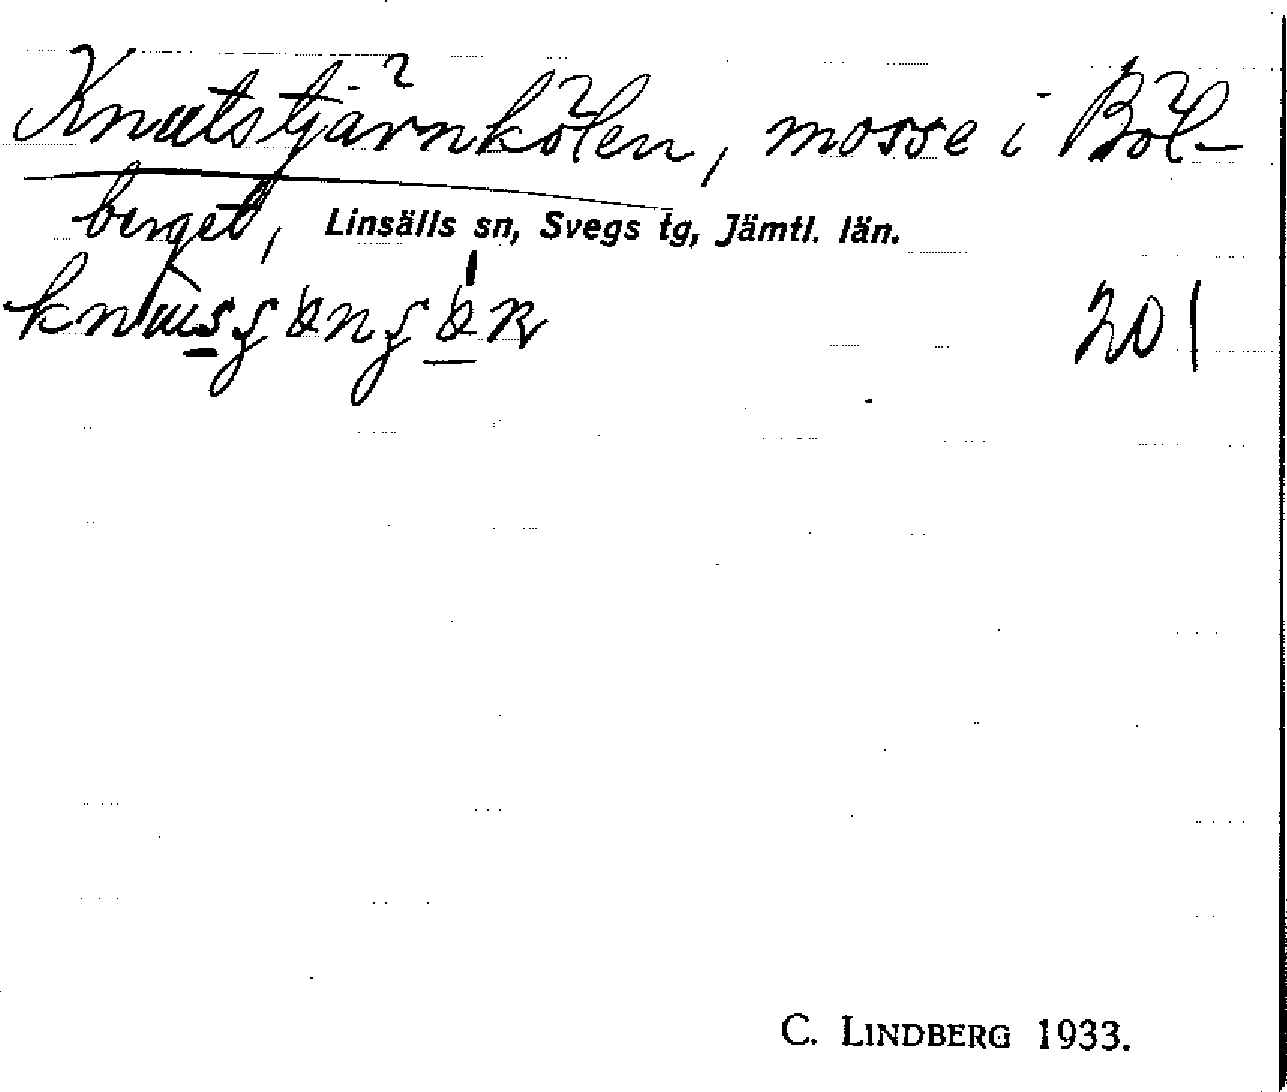 Knutstjärnkölen, mosse i Böl-
berget, Linsälls sn, Svegs tg, Jämtl. län.
201
C. LINDBERG 1933.